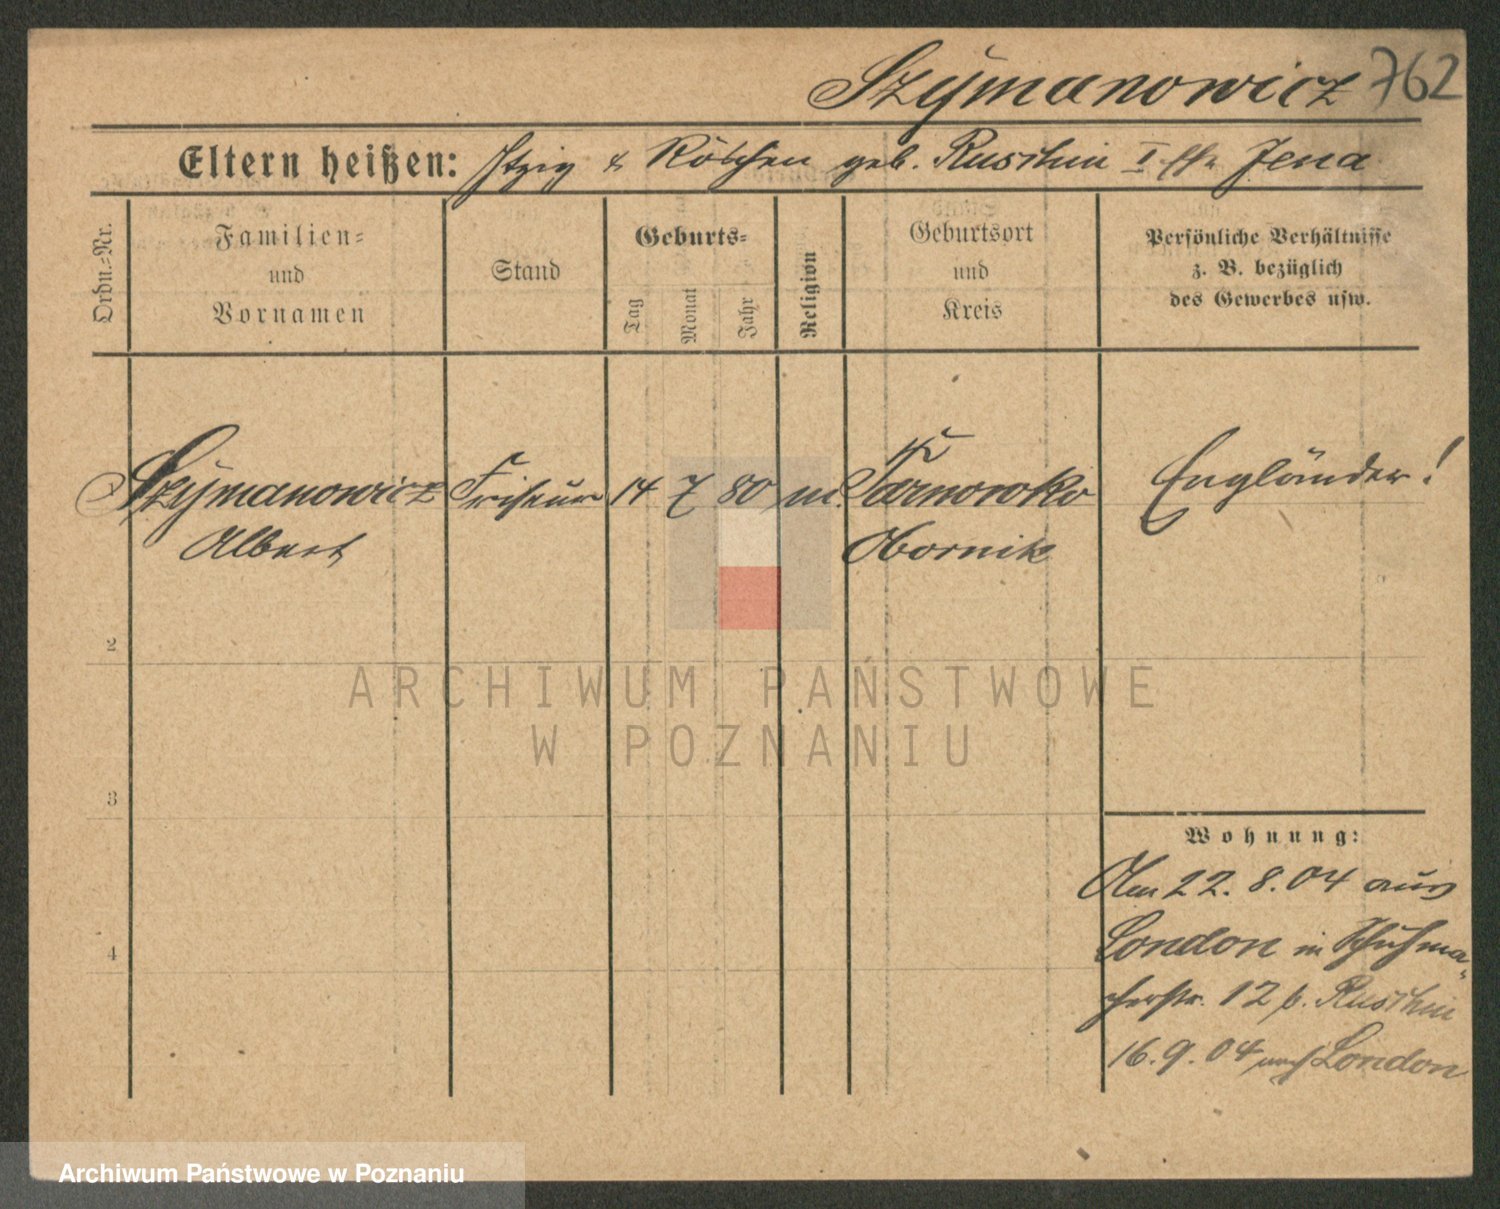 Szymanowicz 762
Eltern heißen: Itzig & Röschen geb. Ruschin I Ehe Jena
Ordn.-Nr.
Familien-
und
Vornamen
Stand
Geburts-
Tag
Monat
Jahr
Religion
Geburtsort
und
Kreis
Persönliche Verhältnisse
z. B. bezüglich
des Gewerbes usw.
Szymanowicz Friseur 14 7 80 m. Tarnowko Engländer!
Albert Obornik
2
3
4
Wohnung:
Am 22. 8. 04 aus
London in Schuhma-
cherstr. 12 b. Ruschin
16. 9. 04 nach London
ARCHIWUM PAŃSTWOWE
W POZNANIU
Archiwum Państwowe w Poznaniu